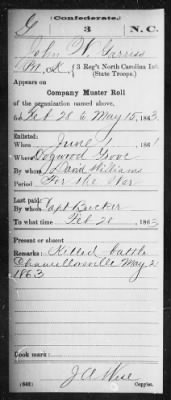 (Confederate.)
G 3 N.C.
John W. Garriss
Pvt. Co. K, 3 Reg't North Carolina Inf.
(State Troops.)
Appears on
Company Muster Roll
of the organization named above,
for Feb 28 to May 15, 1863.
Enlisted:
When June 1, 1861
Where Dogwood Grove
By whom David Williams
Period For the War
Last paid:
By whom Capt Becker
To what time Feb 28, 1863
Present or absent
Remarks: Killed battle
Chancellorsville May 2
1863
Book mark:
J A Wise
Copyist.